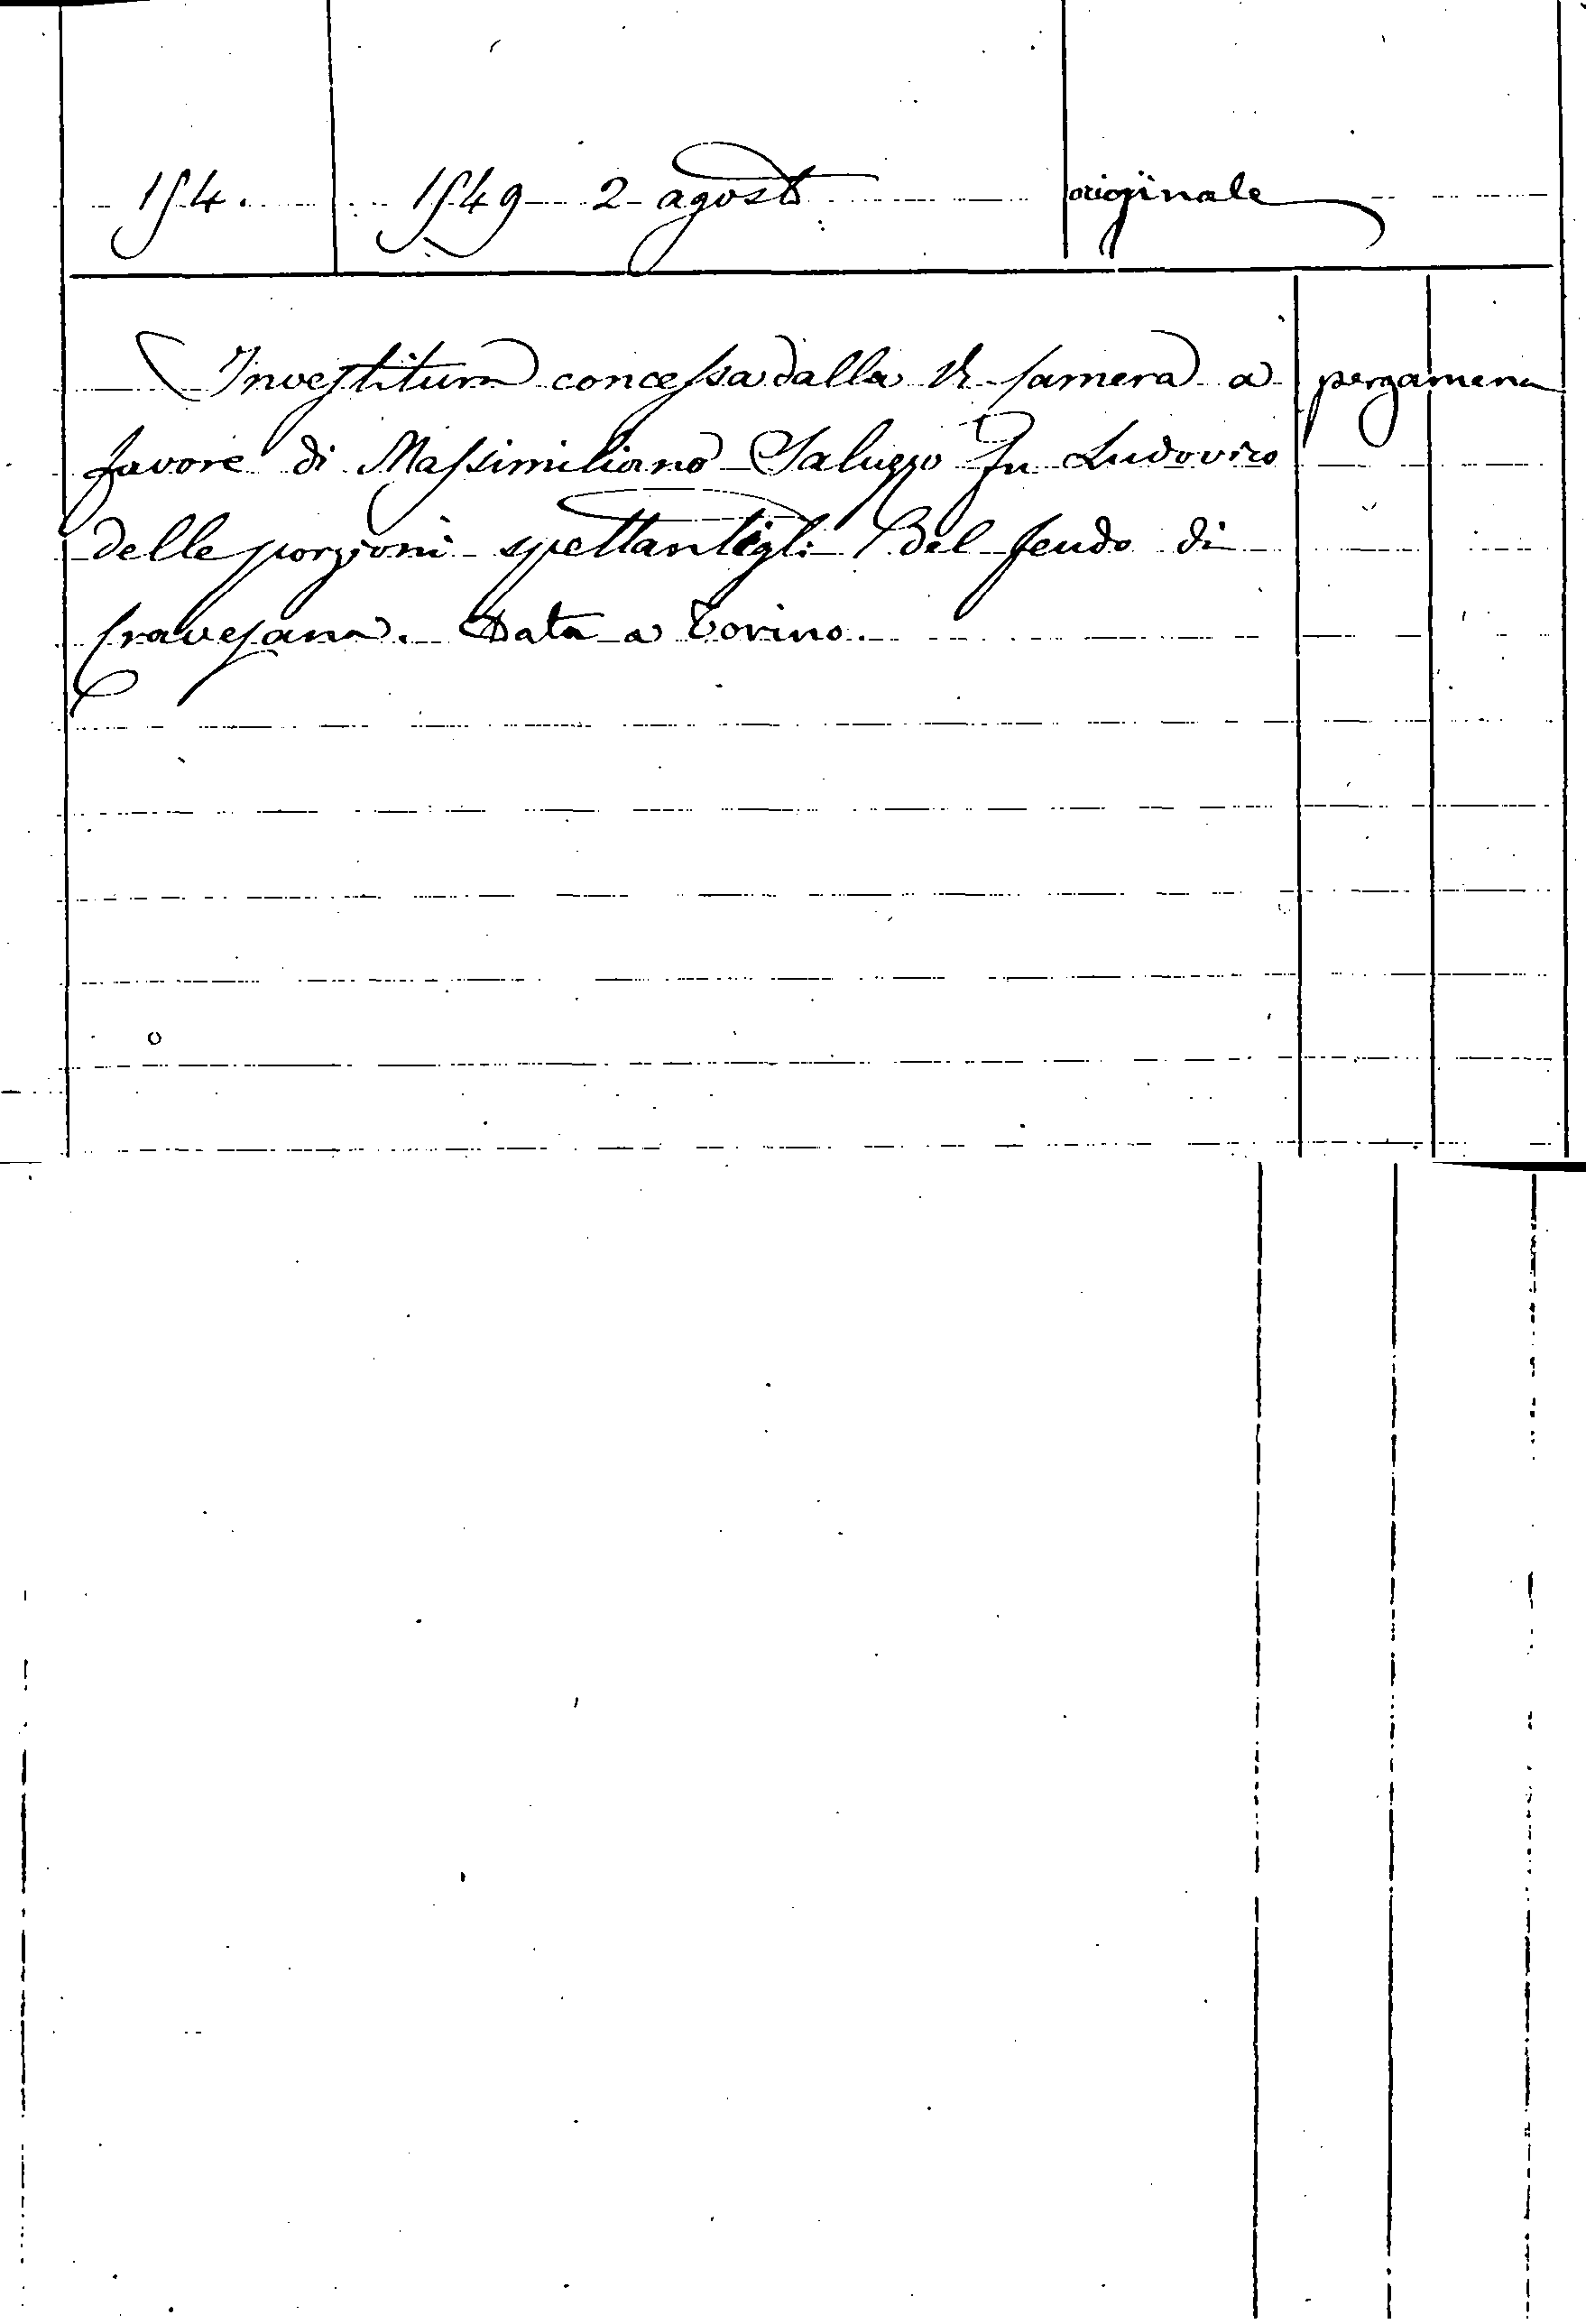 154. 1549 2 agosto originale
Investitura concessa dalla R. Camera a pergamena
favore di Massimiliano Saluzzo fu Ludovico
delle porzioni spettantigli del feudo di
Cravesana. Data a Torino.